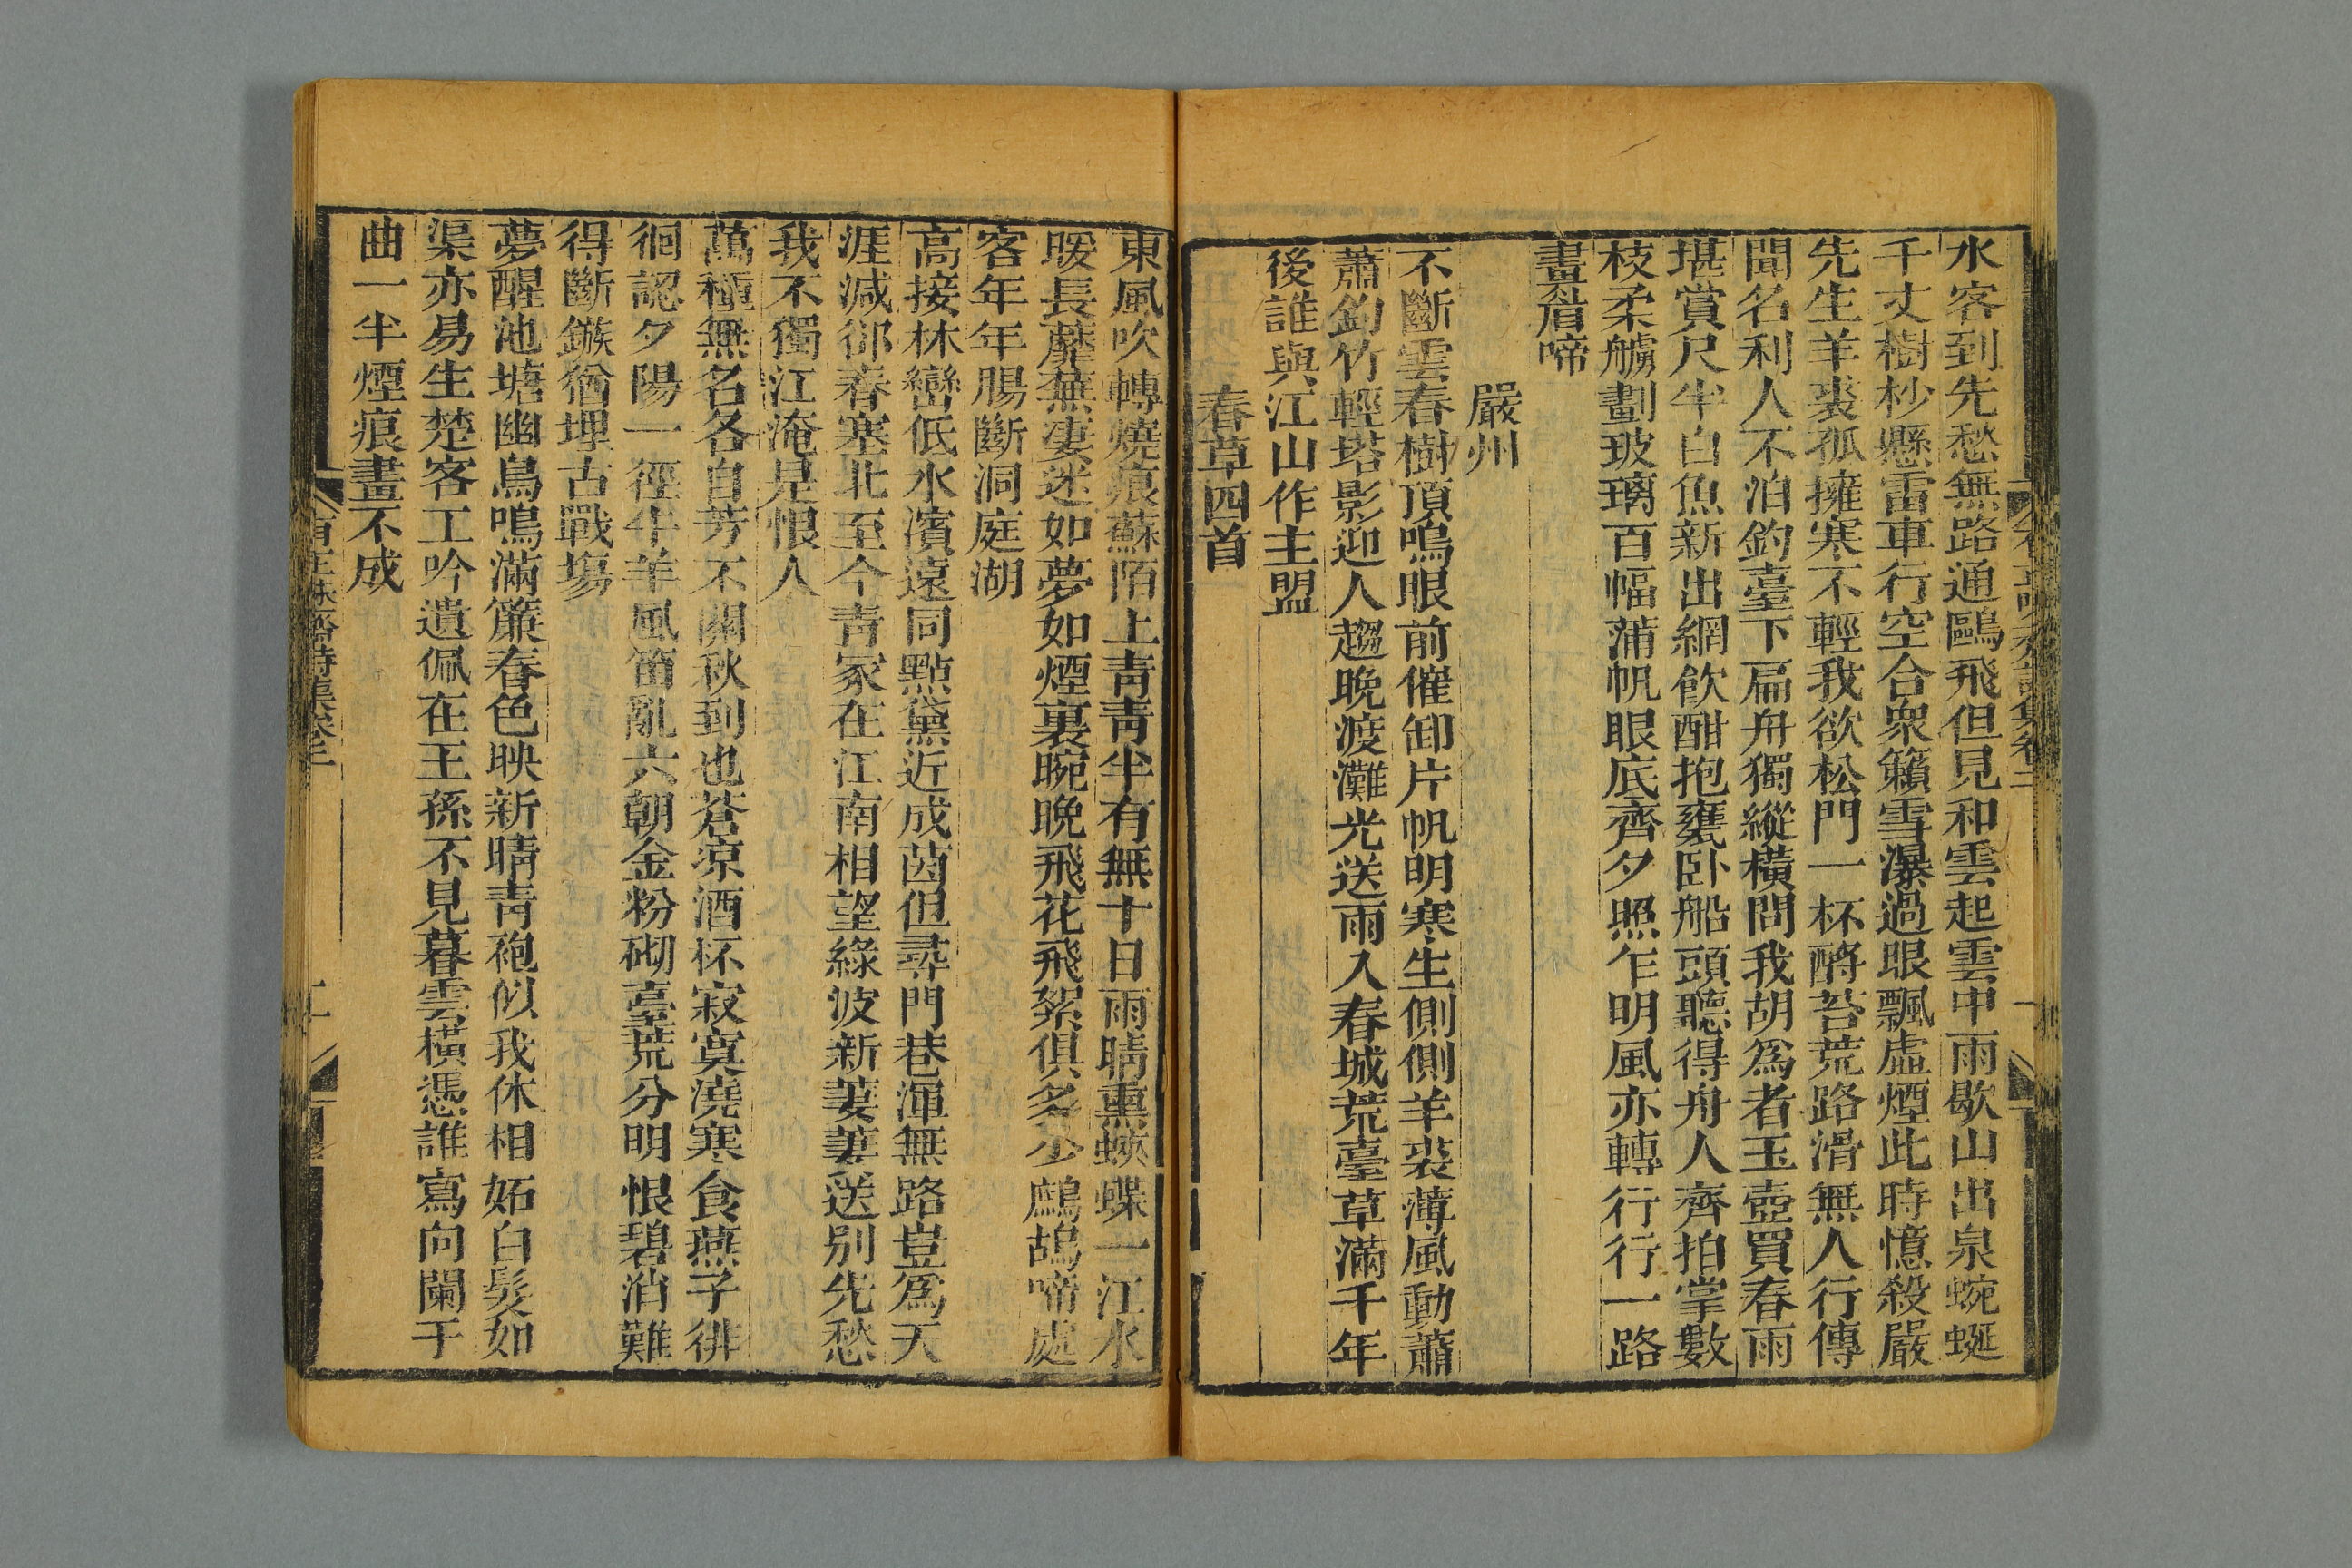 水客到先愁無路通鷗飛但見和雲起雲中雨歇山出泉蜿蜒
千丈樹杪懸雷車行空合衆籟雪瀑過眼飄虛煙此時憶殺嚴
先生羊裘孤擁寒不輕我欲松門一杯酹苔荒路滑無人行傳
聞名利人不泊釣臺下扁舟獨縱橫問我胡爲者玉壺買春雨
堪賞尺半白魚新出網飮酣抱甕卧船頭聽得舟人齊拍掌數
枝柔艣劃玻璃百幅蒲帆眼底齊夕照乍明風亦轉行行一路
畫眉啼
嚴州
不斷雲春樹頂鳴眼前催卸片帆明寒生側側羊裘薄風動蕭
蕭釣竹輕塔影迎人趨晚渡灘光送雨入春城荒臺草滿千年
後誰與江山作主盟
春草四首
東風吹轉燒痕蘇陌上靑靑半有無十日雨晴熏蛺蝶一江水
暖長蘼蕪淒迷如夢如煙裏晼晚飛花飛絮俱多少鷓鴣啼處
客年年腸斷洞庭湖
高接林巒低水濱遠同點黛近成茵但尋門巷渾無路豈爲天
涯減卻春塞北至今靑冢在江南相望綠波新萋萋送别先愁
我不獨江淹是恨人
萬種無名各自芳不關秋到也蒼涼酒杯寂寞澆寒食燕子徘
徊認夕陽一徑牛羊風笛亂六朝金粉砌臺荒分明恨碧消難
得斷鏃猶埋古戰塲
夢醒池塘幽鳥鳴滿簾春色映新晴靑袍似我休相妬白髮如
渠亦易生楚客工吟遺佩在王孫不見暮雲橫憑誰寫向闌干
曲一半煙痕畫不成